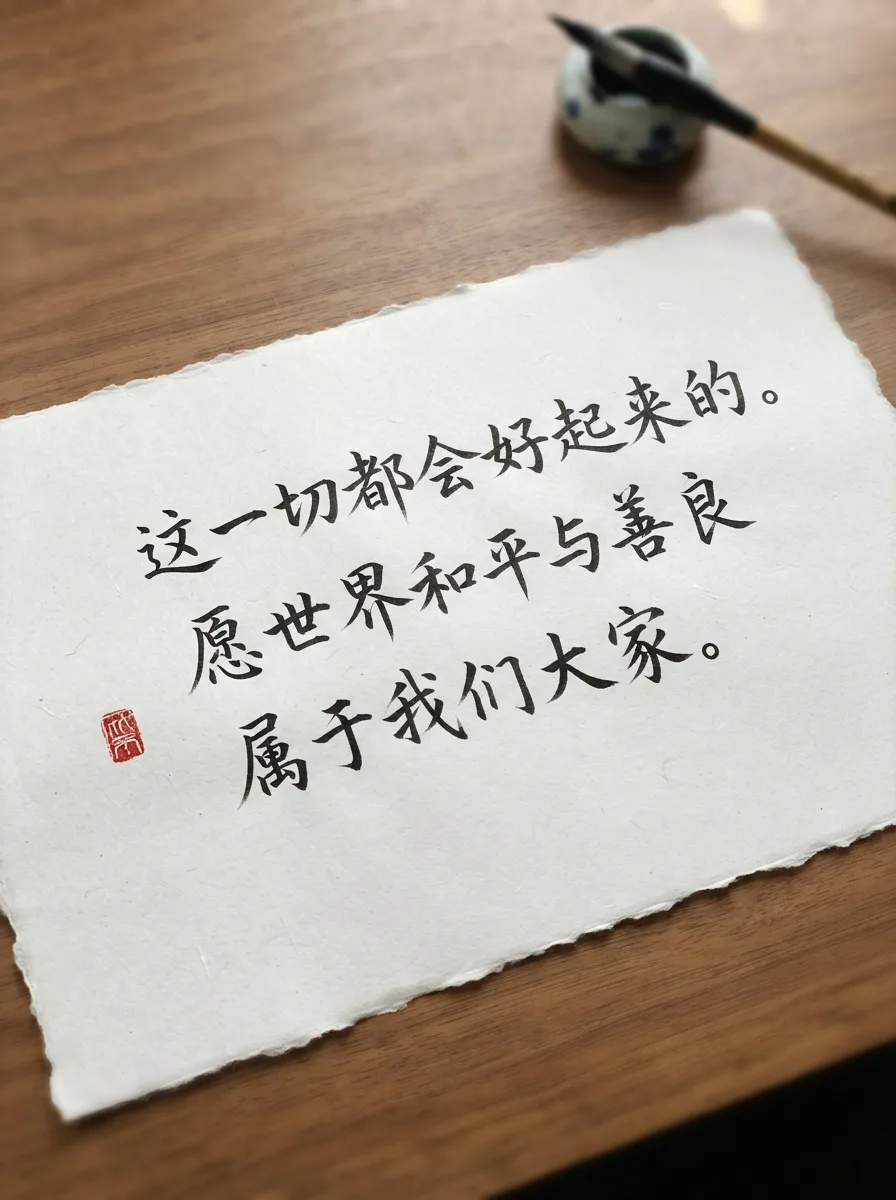 这一切都会好起来的。
愿世界和平与善良
属于我们大家。